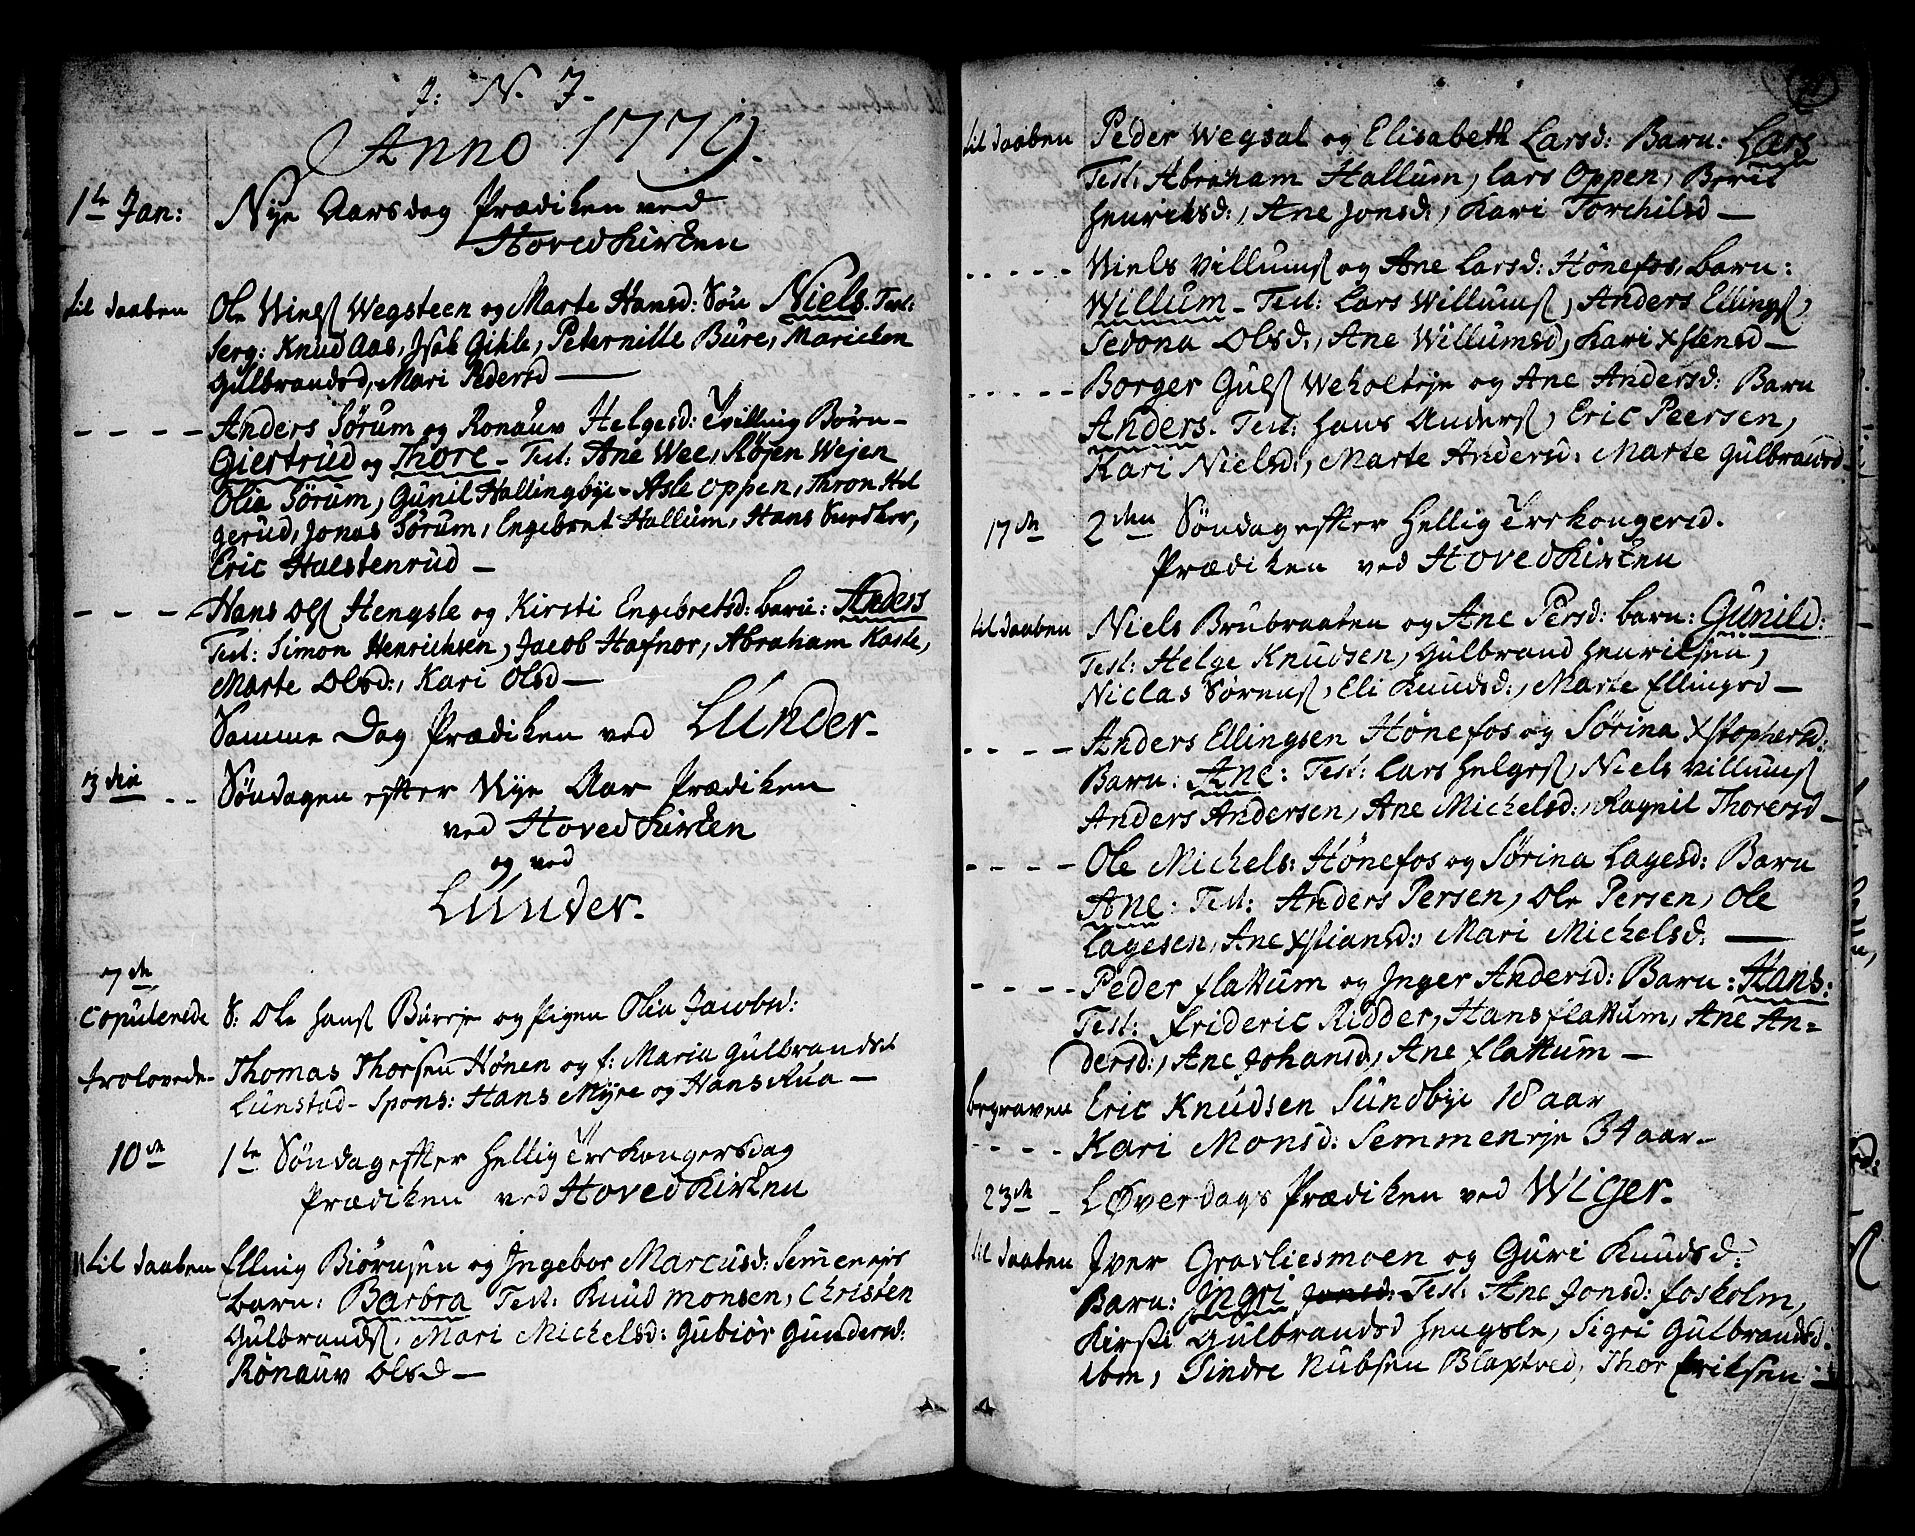 J: N. J.
Anno 1779.
1te Jan: Nye Aarsdag Prædiken ved
Hovedkirken
til daaben Ole Niels Wegsteen og Marte Hansd: Søn Niels. Test:
Serg: Knud Aas, Isak Gihle, Peternille Bure, Maricken
Gulbrandsd, Mari Pedersd —
- - - - Anders Sørum og Ronauv Helgesd: Tvilling Børn -
Giertrud og Thore - Test: Ane Wee, Røjen Wejen
Olia Sørum, Gunil Hallingbye - Asle Oppen, Thron Hel
gerud, Jonas Sørum, Engebret Hallum, Hans
Eric Halstenrud —
- - - - Hans Ols Hengsle og Kirsti Engebretsd: barn: Anders
Test: Simon Henrichsen, Jacob Hafnor, Abraham Kaste,
Marte Olsd:, Kari Olsd —
Samme Dag Prædiken ved Lunder.
3die - - Søndagen efter Nye Aar Prædiken
ved Hovedkirken
og ved
Lunder.
7de
Copulerede S: Ole Hans Burrje og Pigen Olia Jacobsd:
trolovede - Thomas Thorsen Hønen og f: Maria Gulbrandsd
Lunstad - Spons: Hans Myre og Hans Rua —
10de 1te Søndag efter Hellig Trekongersdag
Prædiken ved Hovedkirken
til daaben Elling Biørnsen og Ingebor Marcusd: Semenejer
barn: Barbra Test: Knud Monsen, Christen
Gulbrands, Mari Michelsd: Gubiør Gundersd:
Rønauv Olsd —
til daaben Peder Wegsal og Elisabeth Larsd: Barn: Lars
Test: Abraham Hallum, Lars Oppen, Berit
Henriksd:, Ane Jonsd:, Kari Torchilsd —
- - - - - Niels Villums og Ane Larsd: Hønefos, barn:
Willum - Test: Lars Willums, Anders Ellings,
Sedona Olsd:, Ane Willumsd, Kari Xstensd —
- - - - - Borger Guls Weholteje og Ane Andersd: Barn
Anders. Test: Hans Anders, Eric Peersen,
Kari Nielsd:, Marte Andersd: Marte Gulbrandsd —
17de 2den Søndag efter Hellig Trekongersd.
Prædiken ved Hovedkirken
til daaben Niels Brubraaten og Ane Persd: barn: Gunild:
Test: Helge Knudsen, Gulbrand Henriksen,
Niclas Sørens, Eli Knudsd:, Marte Ellingsd —
- - - - Anders Ellingsen Hønefos og Sørina Xstophersd:
Barn: Ane: Test: Lars Helges, Niels Villums
Anders Andersen, Ane Michelsd:, Ragnil Thoresd —
- - - - Ole Michels: Hønefos og Sørina Lagesd: Barn
Ane: Test: Anders Persen, Ole Persen, Ole
Lagesen, Ane Xstiansd:, Mari Michelsd: —
- - - - Peder Flattum og Inger Andersd: Barn: Hans:
Test: Frideric Ridder, Hans Flattum, Ane An=
dersd:, Ane Johansd, Ane Flattum —
begraven Eric Knudsen Sundbye 18 aar
- - - - Kari Monsd: Semmeneje 34 aar -
23de - Løverdags Prædiken ved Wiger.
til daaben Iver Gravliesmoen og Guri Knudsd:
Barn: Ingri Jonsd: Test: Ane Jonsd: Foskolm,
Kirsti Gulbrandsd Hengsle, Sigri Gulbrandsd
ibm, Sindre Nubsen Blaxtved, Thor Eriksen